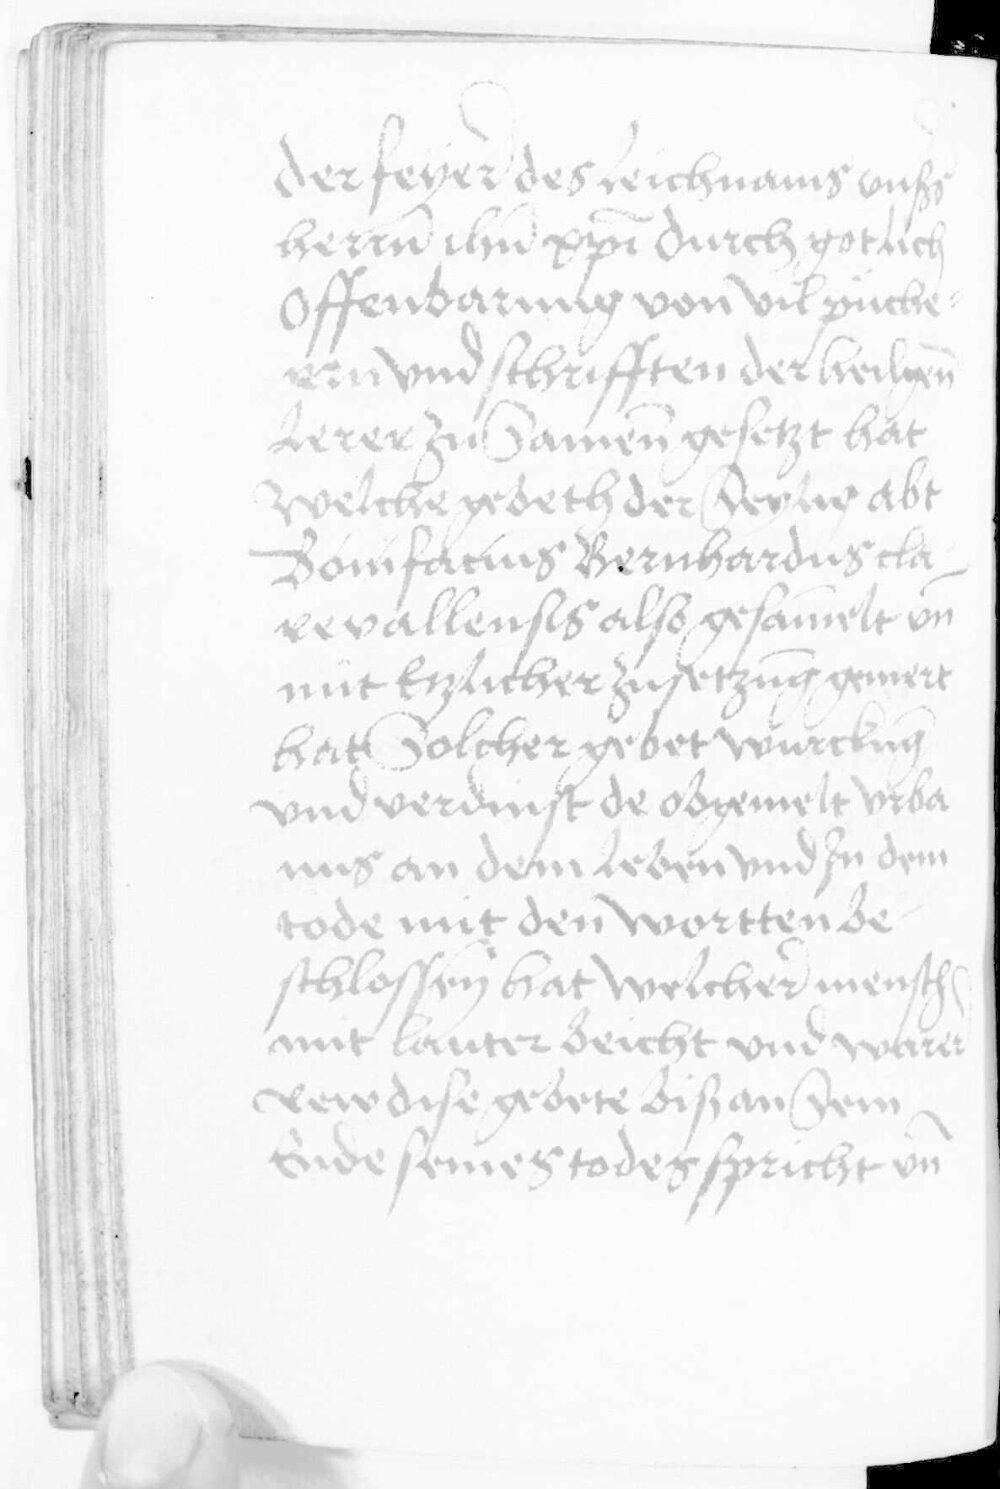 der feyer des leichnams vnßs
herrn̄ ihū xp̄i durch gotlich
Offenbarung von vil püche-
ern vnd schrifften der heiligen̄
lerer zu Samen̄ gesetzt hat
welche gebeth der Seylig abt
Bonifacius Bernhardus cla-
revallensis also gesam̄elt vn̄
mit etzlicher zusetzūng gemert
hat Solcher gebet wurckūg
vnd verdinst de obgemelt vrba
nus an dem leben vnd In dem
tode mit den̄ wortten be-
schlossen hat welcher mensch
mit lauter beicht vnd warer
rew dise gebete biß an Sein
Ende seines todes spricht vn̄